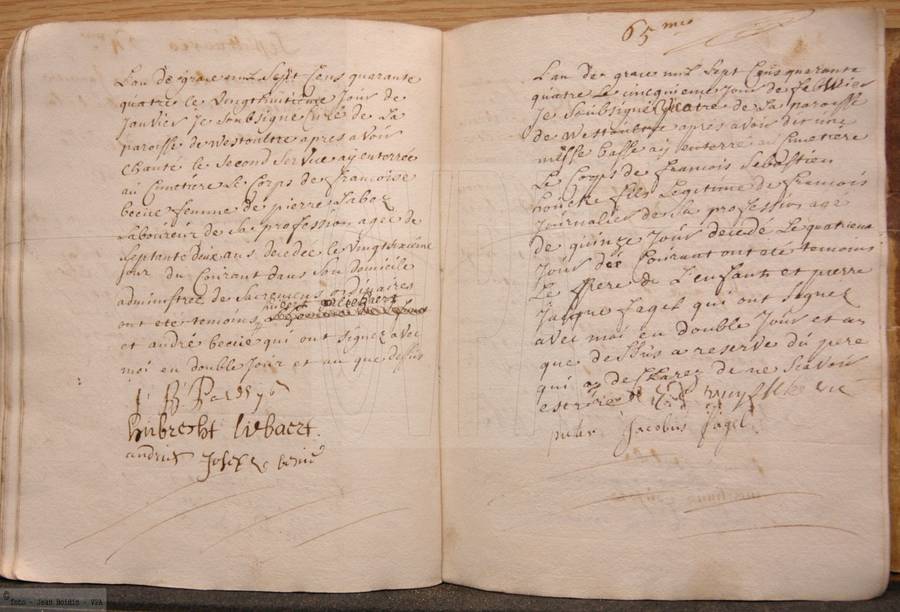 L'an de grace mil Sept Cens quarante
quatre le vingthuitieme Jour de
Janvier Je Soubsigné Curé de La
paroisse de Westoultre apres avoir
Chanté le Second Service ay enterrée
au Cimetiere Le Corps de Francoise
becüe femme de pierre
Laboureur de Sa profession agée de
Septante deux ans decedée le
Jour du Courant dans Son domicile
administrée de Sacremens ordinaires
ont eté temoins
et andré becüe qui ont Signez avec
moi en double Jour et an que dessus
hubrecht liebaert
andries Josep
65 mes
L'an de grace mil Sept Cens quarante
quatre Le cincquieme Jour de febvrier
Je Soubsigné de La paroisse
de Westoultre après avoir dit une
messe basse ay enterré au Cimetiere
Le Corps de francois Sebastien
fils Legitime de francois
Journalier de Sa profession agé
de quinze Jour decedé Le quatrieme
Jour du Courant ont eté temoins
Le pere de L'enfant et pierre
Jacque fagel qui ont Signez
avec moi en double Jour et an
que dessus a reserve du pere
qui a declarez de ne Scavoir
escrire
pieter Jacobus fagel
© foto - Jean Boidin - VVA